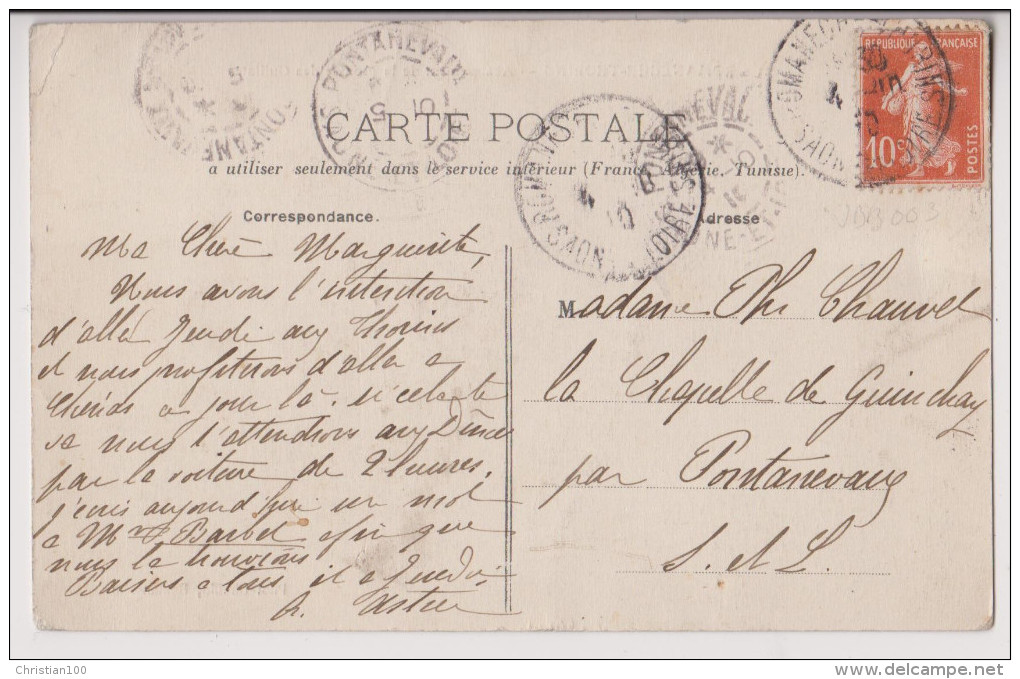 CARTE POSTALE
a utiliser seulement dans le service intérieur (France, Algérie, Tunisie).
RÉPUBLIQUE FRANÇAISE
10c
POSTES
PONTANEVAUX
Correspondance.
Adresse
JBB003
Ma Chère Marguerite,
Nous avons l'intention
d'aller Jeudi aux Thorins
et nous profiterons d'aller a
a jour là. si cela te
va nous l'attendrons aux
par la voiture de 2 heures.
j'écris aujourd'hui un mot
a Mme Barbet afin que
nous la trouvions
Baisers a tous et a Jeudi,
Madame Ph Chauvet
la Chapelle de Guinchay
par Pontanevaux
S. et L.
Christian100